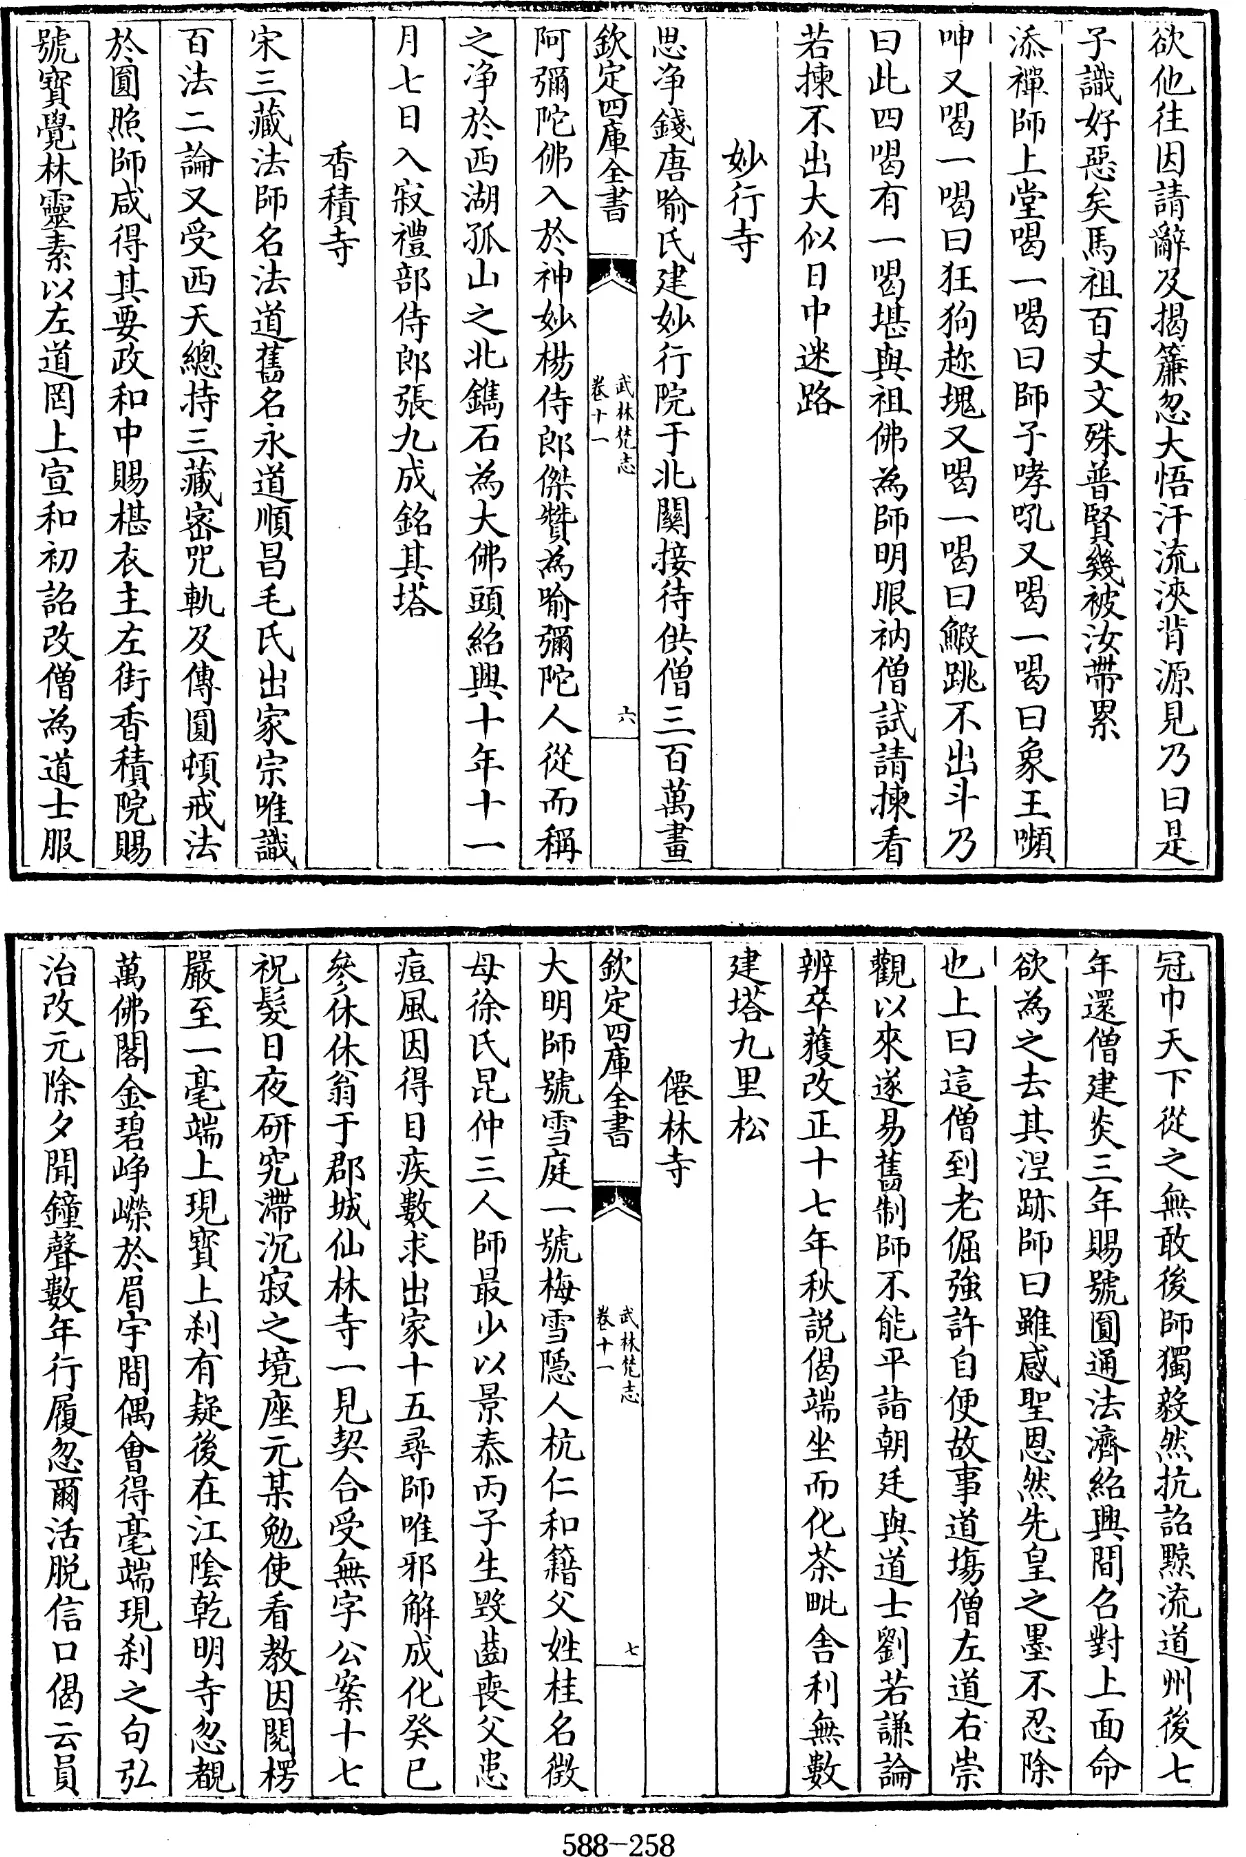 欲他往因請辭及揭簾忽大悟汗流浹背源見乃曰是
子識好惡矣馬祖百丈文殊普賢幾被汝帶累
添禪師上堂喝一喝曰師子哮吼又喝一喝曰象王嚬
呻又喝一喝曰狂狗趂塊又喝一喝曰鰕跳不出斗乃
曰此四喝有一喝堪與祖佛為師明眼衲僧試請揀看
若揀不出大似日中迷路
妙行寺
思净錢唐喻氏建妙行院于北關接待供僧三百萬畫
欽定四庫全書
武林梵志
卷十一
六
阿彌陀佛入於神妙楊侍郎傑贊為喻彌陀人從而稱
之净於西湖孤山之北鐫石為大佛頭紹興十年十一
月七日入寂禮部侍郎張九成銘其塔
香積寺
宋三藏法師名法道舊名永道順昌毛氏出家宗唯識
百法二論又受西天總持三藏密咒軌及傳圓頓戒法
於圓照師咸得其要政和中賜椹衣主左街香積院賜
號寳覺林靈素以左道罔上宣和初詔改僧為道士服
冠巾天下從之無敢後師獨毅然抗詔黥流道州後七
年還僧建炎三年賜號圓通法濟紹興間召對上面命
欲為之去其涅跡師曰雖感聖恩然先皇之墨不忍除
也上曰這僧到老倔強許自便故事道塲僧左道右崇
觀以來遂易舊制師不能平詣朝廷與道士劉若謙論
辨卒獲改正十七年秋說偈端坐而化茶毗舍利無數
建塔九里松
僊林寺
欽定四庫全書
武林梵志
卷十一
七
大明師號雪庭一號梅雪隱人杭仁和籍父姓桂名徴
母徐氏昆仲三人師最少以景泰丙子生毀齒喪父患
痘風因得目疾數求出家十五尋師唯邪解成化癸巳
參休休翁于郡城仙林寺一見契合受無字公案十七
祝髮日夜研究滯沉寂之境座元某勉使看教因閱楞
嚴至一毫端上現寳上刹有疑後在江陰乾明寺忽覩
萬佛閣金碧崢嶸於眉宇間偶會得毫端現刹之句弘
治改元除夕聞鐘聲數年行履忽爾活脫信口偈云員
588-258